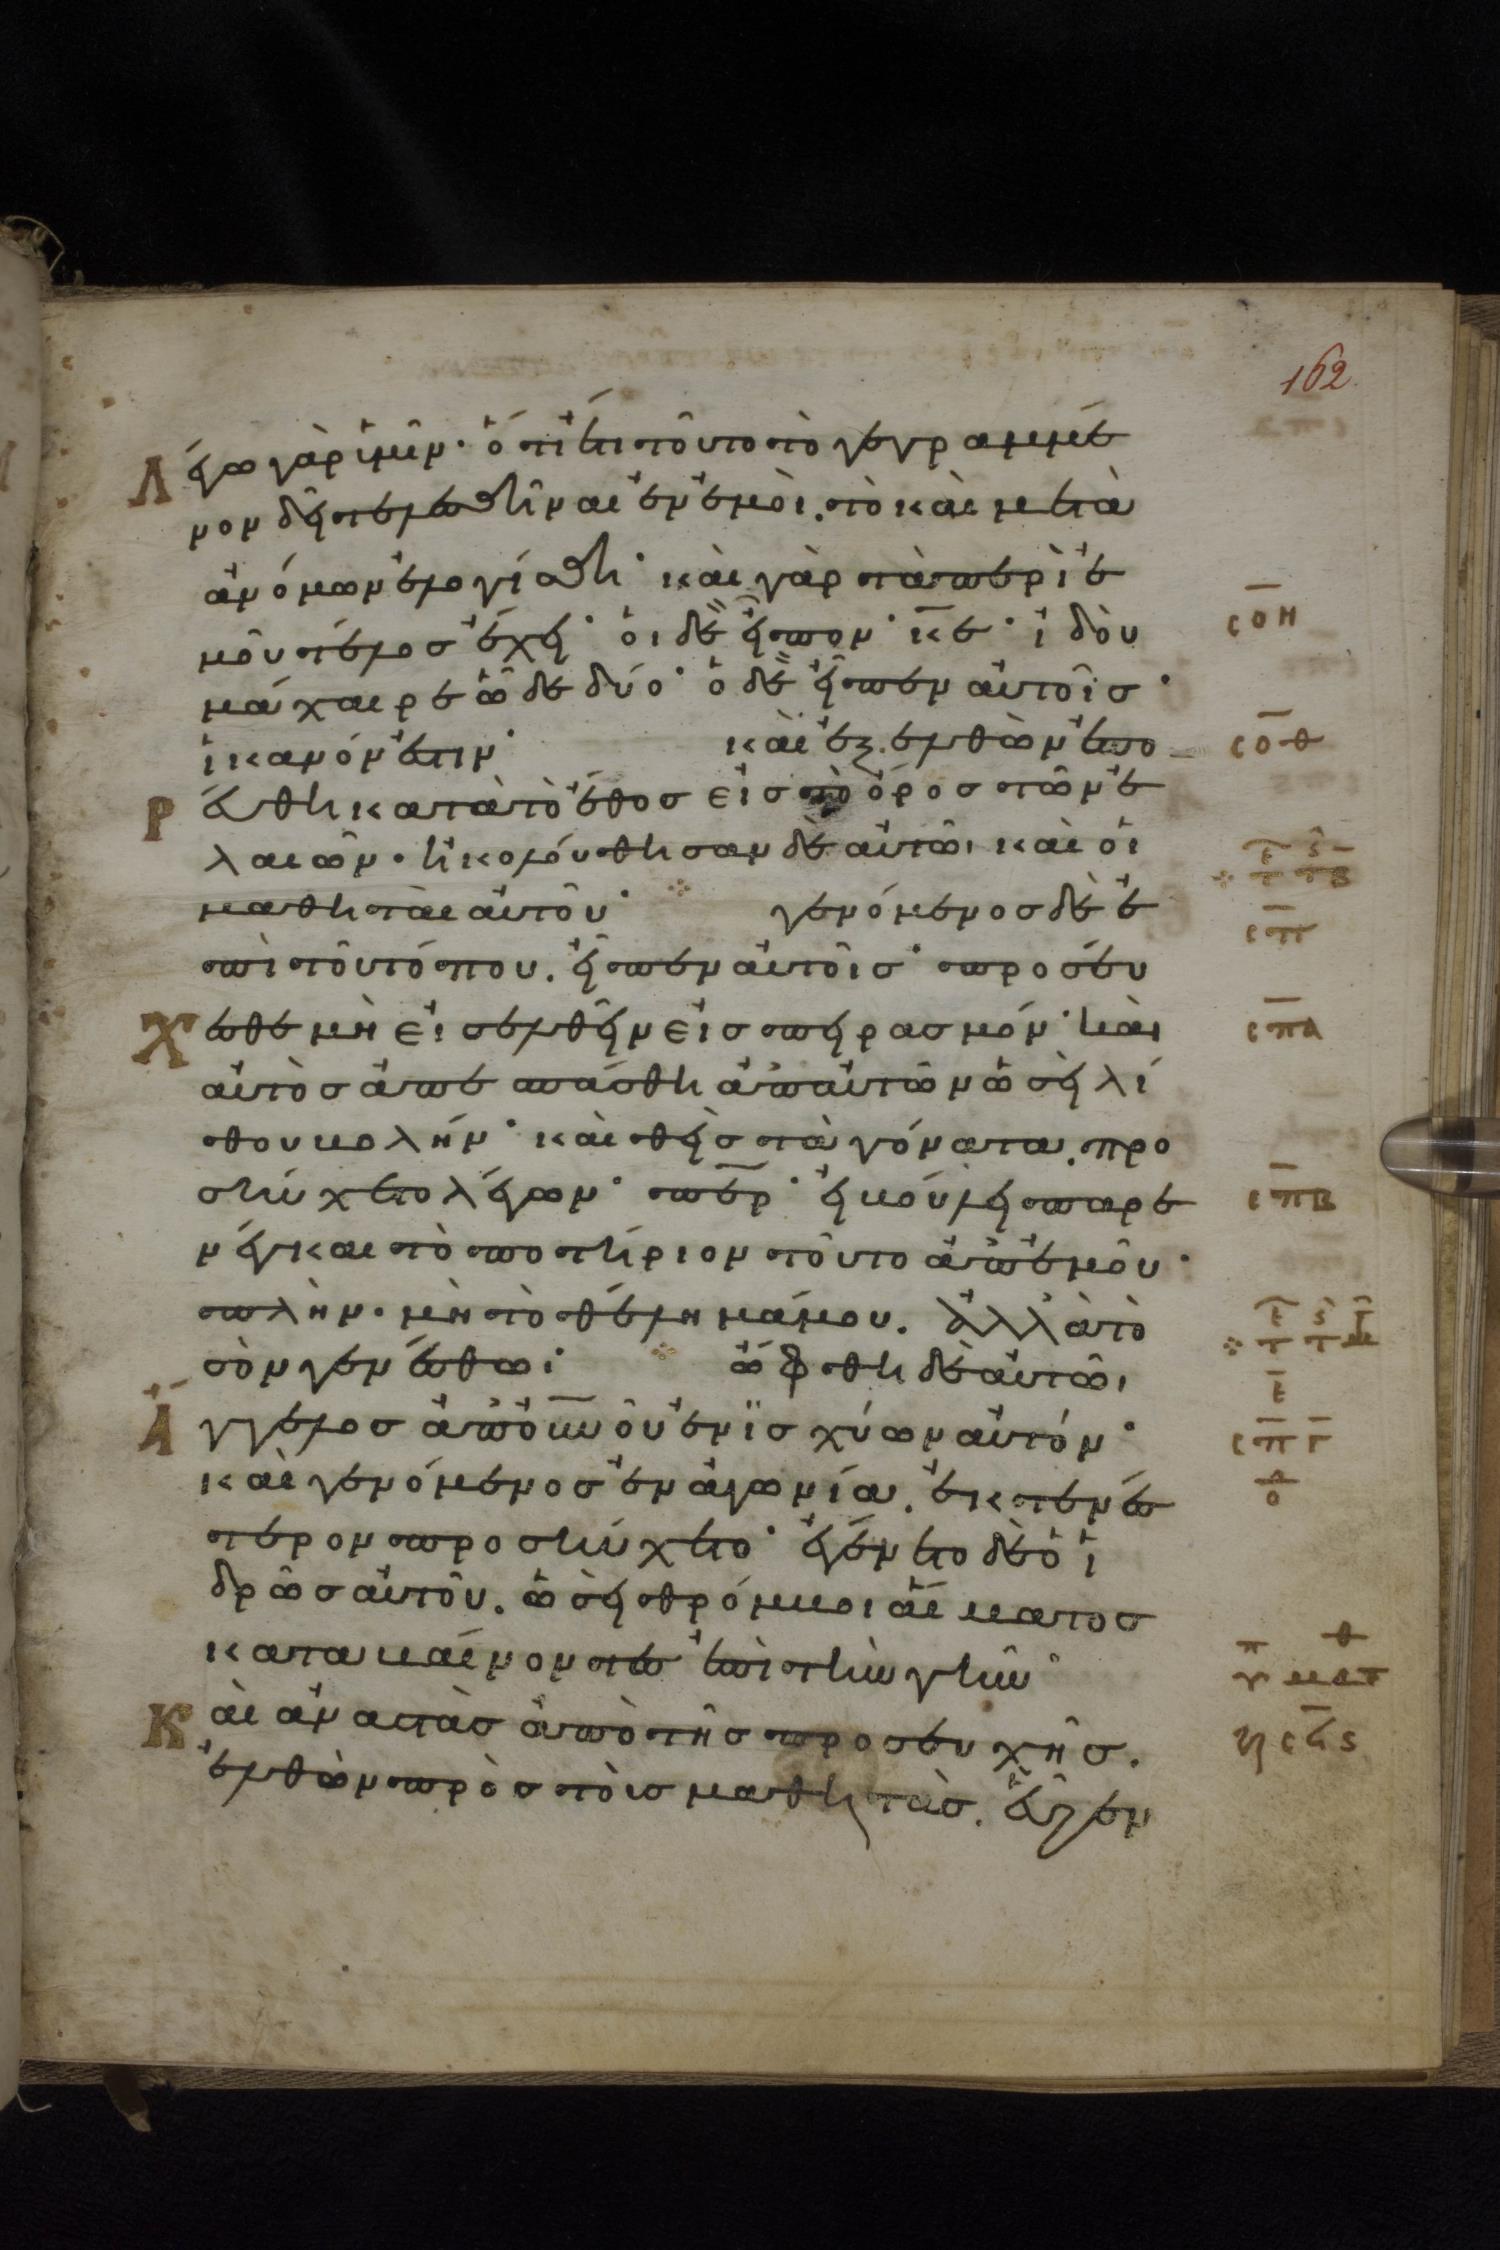 162
Λέγω γὰρ ὑμῖν· ὅτι ἔτι τοῦτο τὸ γεγραμμέ
νον δεῖ τελεσθῆναι ἐν ἐμοὶ. τὸ καὶ μετὰ
ἀνόμων ἐλογίσθη· καὶ γὰρ τὰ περὶ ἐ
μοῦ τέλος ἔχει· οἱ δὲ εἶπον· κ̅ε̅· ἰδοὺ
μάχαιραι ὧδε δύο· ὁ δὲ εἶπεν αὐτοῖς·
ἱκανόν ἐστιν· καὶ ἐξελθὼν ἐπο
ρεύθη κατὰ τὸ ἔθος εἰς τὸ ὄρος τῶν ἐ
λαιῶν· ἠκολούθησαν δὲ αὐτῶι καὶ οἱ
μαθηταὶ αὐτοῦ· γενόμενος δὲ ἐ
πὶ τοῦ τόπου. εἶπεν αὐτοῖς· προσεύ
χεσθε μὴ εἰσελθεῖν εἰς πειρασμόν· καὶ
αὐτὸς ἀπεσπάσθη ἀπ' αὐτῶν ὡσεὶ λί
θου βολήν· καὶ θεὶς τὰ γόνατα. προ
σηύχετο λέγων· πε̅ρ· εἰ βούλει παρε
νέγκαι τὸ ποτήριον τοῦτο ἀπ' ἐμοῦ·
πλὴν· μὴ τὸ θέλημά μου. ἀλλὰ τὸ
σὸν γενέσθω· ὤφθη δὲ αὐτῶι
ἄγγελος ἀπ' ο̅υ̅ν̅ο̅υ̅ ἐνϊσχύων αὐτόν·
καὶ γενόμενος ἐν ἀγωνία. ἐκτενέσ
τερον προσηύχετο· ἐγένετο δὲ ὁ ἱ
δρὼς αὐτοῦ. ὡσεὶ θρόμβοι αἵματος
καταβαίνοντες ἐπὶ τὴν γῆν·
Καὶ ἀναστὰς ἀπὸ τῆς προσευχῆς.
ἐλθὼν πρὸς τοὺς μαθητὰς. εὗρεν
σο̅η
σο̅θ
σπ̅
σπ̅α
σπ̅β
σπ̅γ